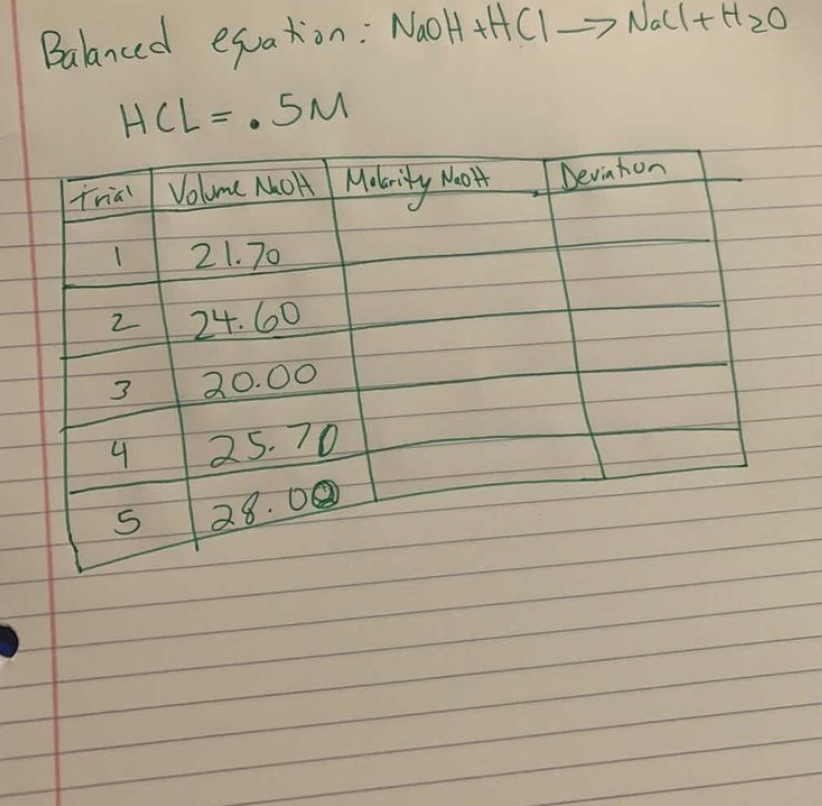 Balanced equation: NaOH+HCl—>NaCl+H2O
HCL=.5M
Trial Volume NaOH Molarity NaOH Deviation
1 21.70
2 24.60
3 20.00
4 25.70
5 28.00